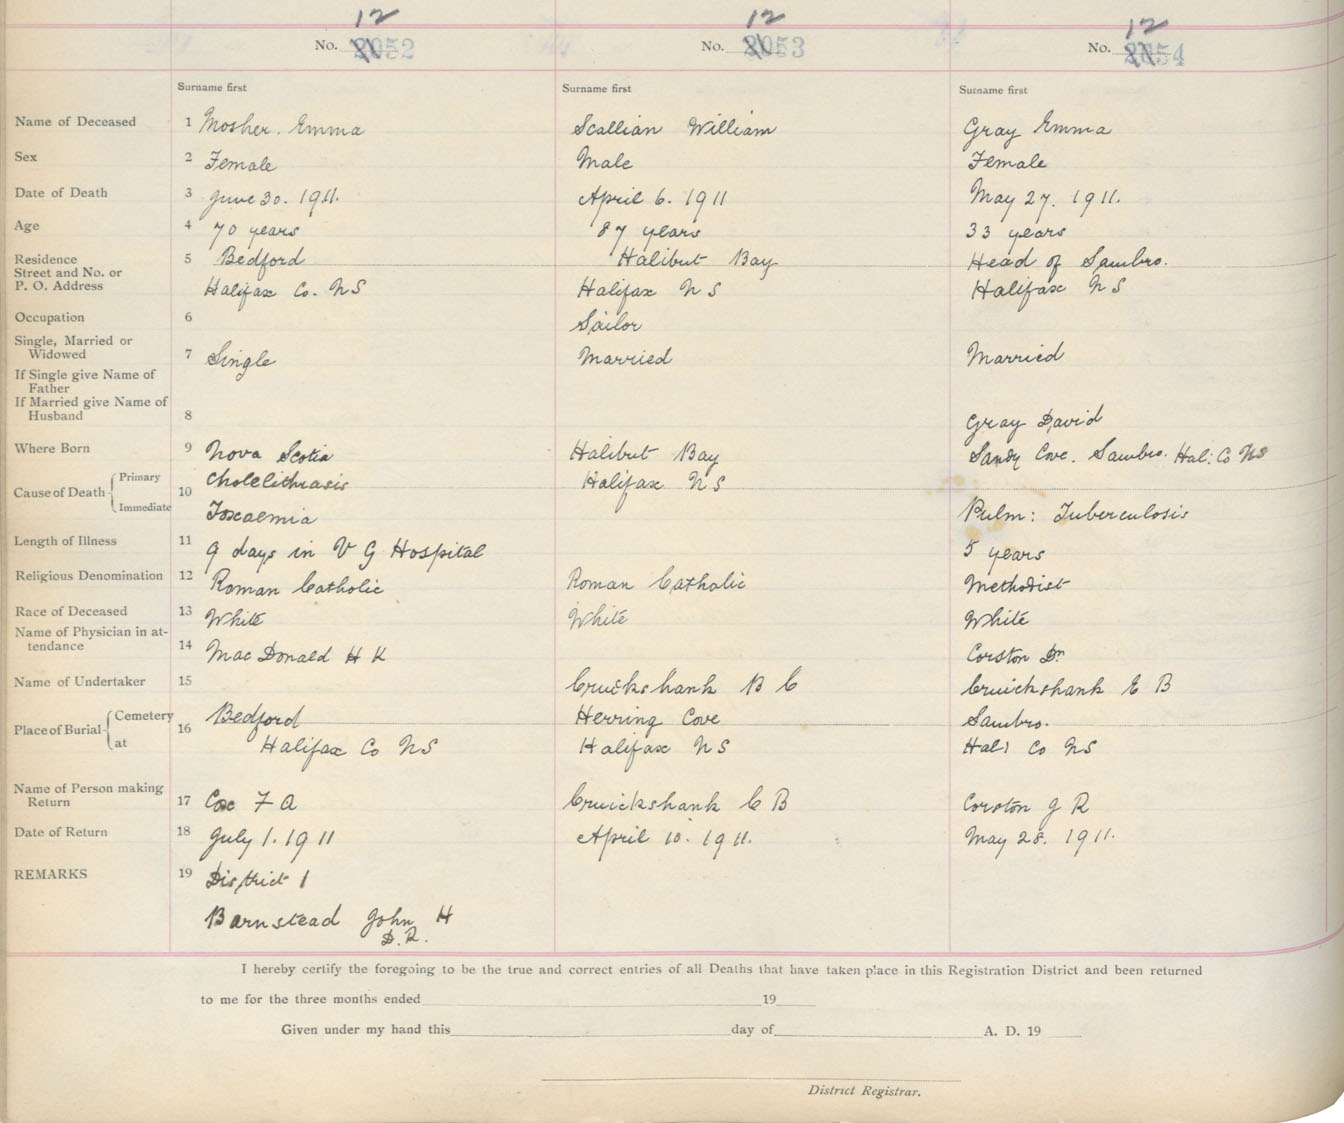 12 12 12
No. 2052 No. 2053 No. 2054
Surname first Surname first Surname first
Name of Deceased 1 Mosher. Emma Scallian William Gray Emma
Sex 2 Female Male Female
Date of Death 3 June 30. 1911. April 6. 1911 May 27. 1911.
Age 4 70 years 87 years 33 years
Residence 5 Bedford Halibut Bay Head of Sambro.
Street and No. or
P. O. Address Halifax Co. N S Halifax N S Halifax N S
Occupation 6 Sailor
Single, Married or
Widowed 7 Single Married Married
If Single give Name of
Father
If Married give Name of
Husband 8 Gray David
Where Born 9 Nova Scotia Halibut Bay Sandy Cove. Sambro. Hal: Co NS
Cause of Death Primary 10 Cholelithiasis Halifax N S
Immediate Toxaemia Pulm: Tuberculosis
Length of Illness 11 9 days in V G Hospital 5 years
Religious Denomination 12 Roman Catholic Roman Catholic Methodist
Race of Deceased 13 White White White
Name of Physician in at-
tendance 14 Mac Donald H K Corston Dr
Name of Undertaker 15 Cruikshank B C Cruickshank E B
Place of Burial Cemetery 16 Bedford Herring Cove Sambro.
at Halifax Co N S Halifax N S Hal: Co NS
Name of Person making
Return 17 Cox F A Cruickshank C B Corston J R
Date of Return 18 July 1. 1911 April 10. 1911. May 28. 1911.
REMARKS 19 District 1
Barnstead John H
D. R.
I hereby certify the foregoing to be the true and correct entries of all Deaths that have taken place in this Registration District and been returned
to me for the three months ended 19
Given under my hand this day of A. D. 19
District Registrar.